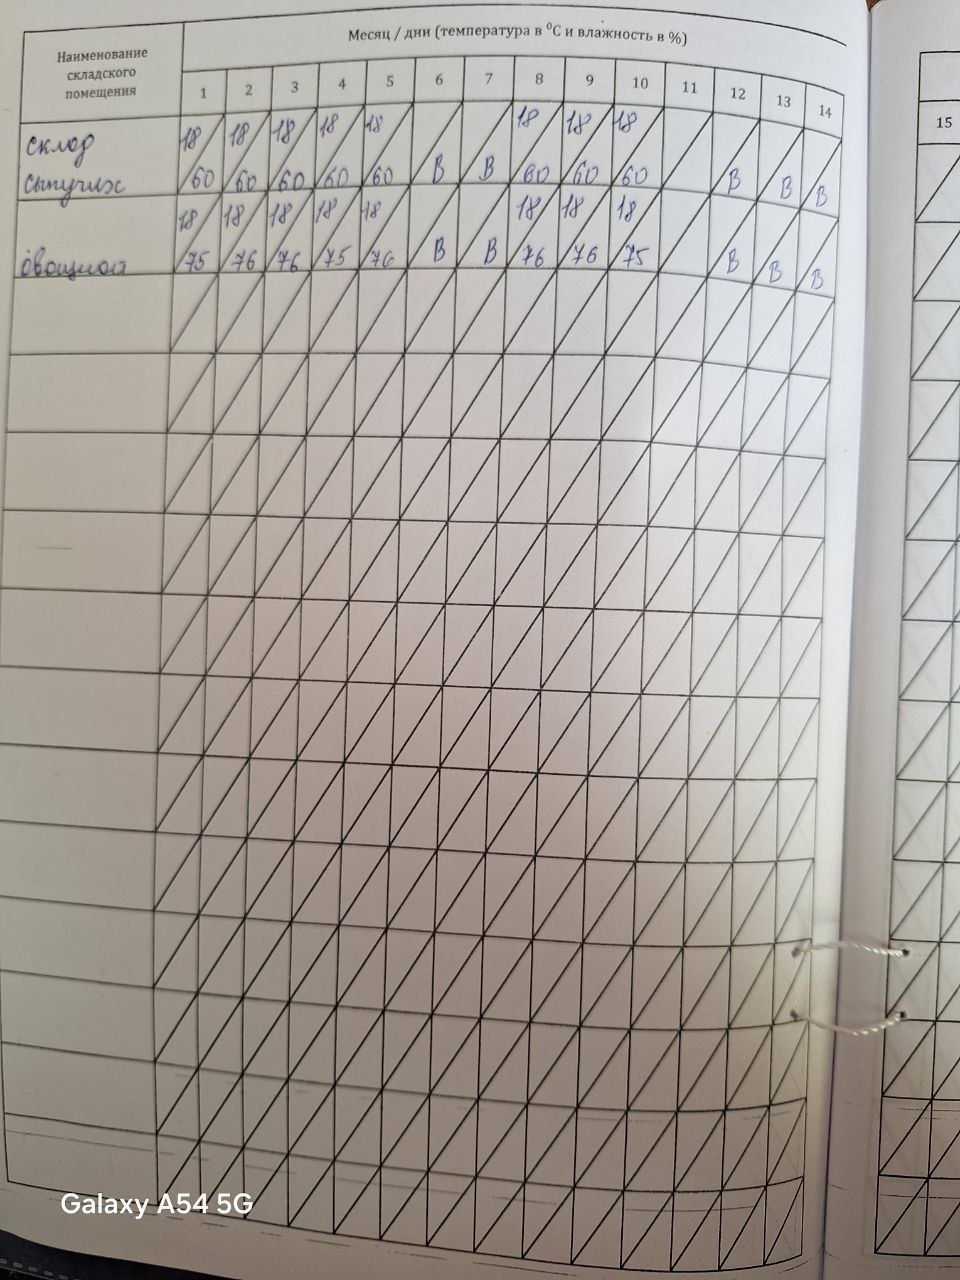 Месяц / дни (температура в ⁰С и влажность в %)
Наименование
складского
помещения
1 2 3 4 5 6 7 8 9 10 11 12 13 14
15
18 18 18 18 18 18 18 18
склад
сыпучих
60 60 60 60 60 В В 60 60 60 В В В
18 18 18 18 18 18 18 18
овощной
75 76 76 75 76 В В 76 76 75 В В В
Galaxy A54 5G